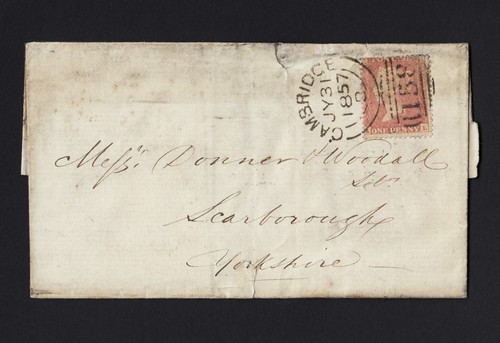 CAMBRIDGE
JY 31
1857
158
ONE PENNY.
Messrs. Donner & Woodall
Solrs.
Scarborough
Yorkshire